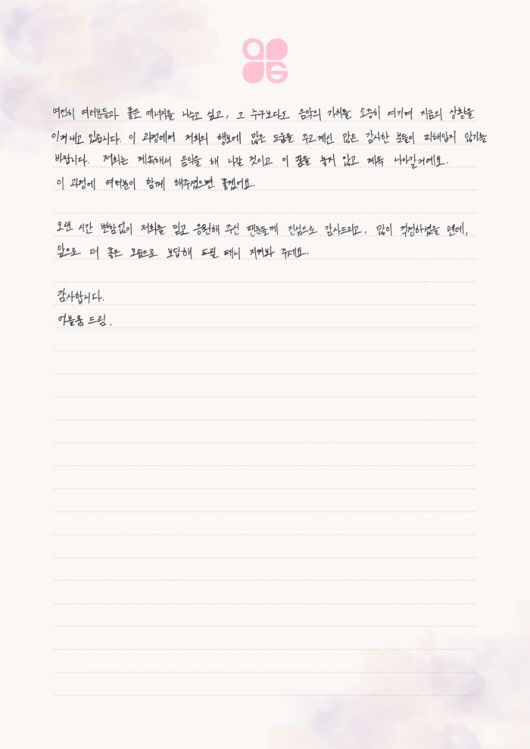 여전히 여러분들과 좋은 에너지를 나누고 싶고, 그 누구보다도 음악의 가치를 소중히 여기며 지금의 상황을
이겨내고 있습니다. 이 과정에서 저희의 행보에 많은 도움을 주고계신 많은 감사한 분들이 피해입지 않기를
바랍니다. 저희는 계속해서 음악을 해 나갈 것이고 이 꿈을 놓지 않고 계속 나아갈거예요.
이 과정에 여러분이 함께 해주셨으면 좋겠어요.
오랜 시간 변함없이 저희를 믿고 응원해 주신 팬분들께 진심으로 감사드리고, 많이 걱정하셨을 텐데,
앞으로 더 좋은 모습으로 보답해 드릴 테니 지켜봐 주세요.
감사합니다.
어블룸 드림.